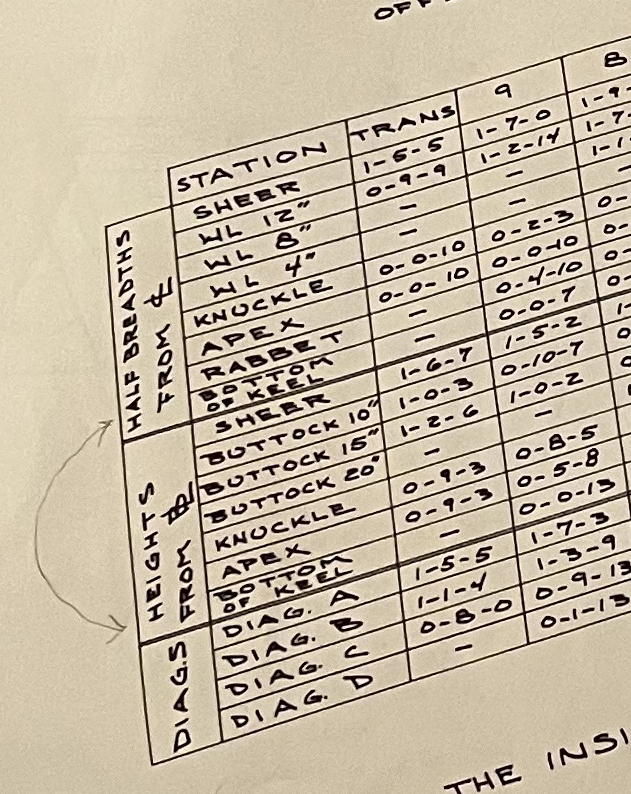 OF
STATION TRANS 9 8
HALF BREADTHS FROM ℄
SHEER 1-5-5 1-7-0 1-9-
WL 12" 0-9-9 1-2-14 1-7-
WL 8" - - 1-1-
WL 4" - - -
KNUCKLE 0-0-10 0-2-3 0-
APEX 0-0-10 0-0-10 0-
RABBET - 0-4-10 0-
BOTTOM OF KEEL - 0-0-7 0-
HEIGHTS FROM BL
SHEER 1-6-7 1-5-2 1-
BUTTOCK 10" 1-0-3 0-10-7
BUTTOCK 15" 1-2-6 1-0-2
BUTTOCK 20" - -
KNUCKLE 0-9-3 0-8-5
APEX 0-9-3 0-5-8
BOTTOM OF KEEL - 0-0-13
DIAG.S
DIAG. A 1-5-5 1-7-3
DIAG. B 1-1-4 1-3-9
DIAG. C 0-8-0 0-9-13
DIAG. D - 0-1-13
THE INSI